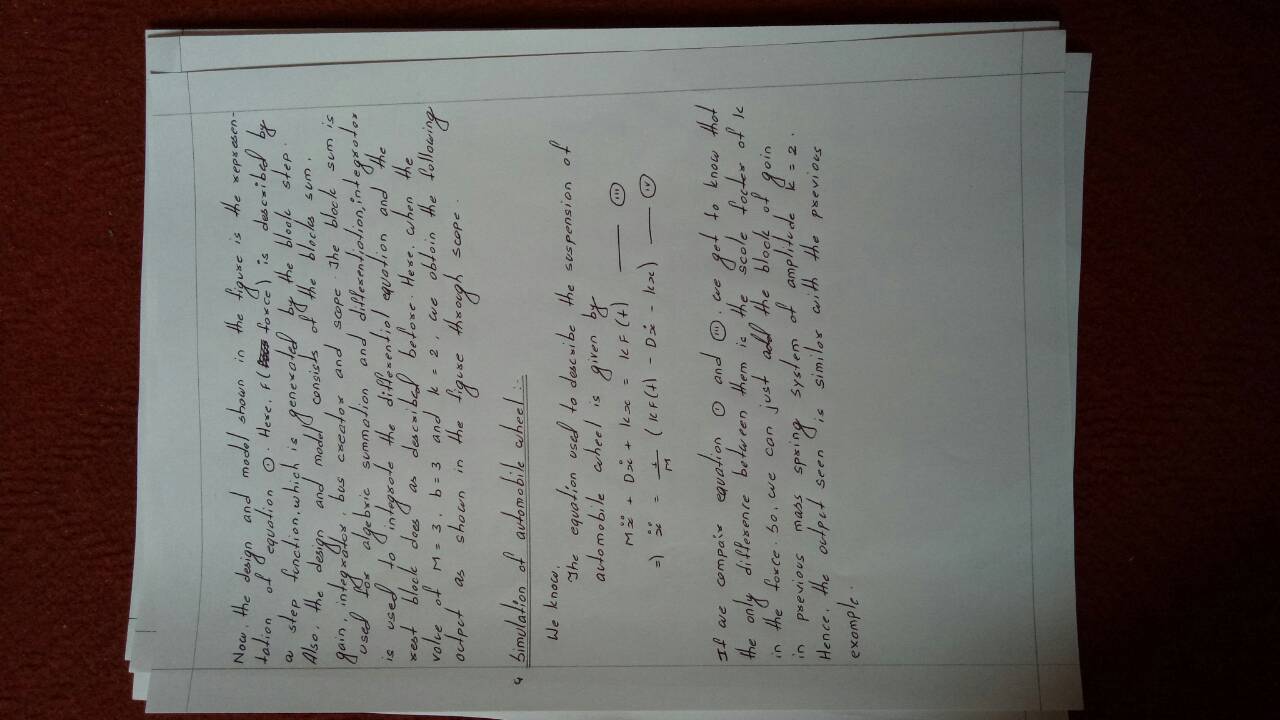 Now, the design and model shown in the figure is the represen-
tation of equation ①. Here, F( force) is described by
a step function, which is generated by the block step.
Also, the design and model consists of the blocks sum,
gain, integrator, bus creator and scope. The block sum is
used for algebric summation and differentiation, integrator
is used to integrate the differential equation and the
rest block does as described before. Here, when the
value of M = 3, b = 3 and k = 2, we obtain the following
output as shown in the figure through scope.
4 Simulation of automobile wheel :-
We know,
The equation used to describe the suspension of
automobile wheel is given by
Mẍ + Dẋ + kx = kF(t) —— (iii)
=) ẍ = 1/M (kF(t) - Dẋ - kx) —— (iv)
If we compair equation ① and (iii), we get to know that
the only difference between them is the scale factor of k
in the force. So, we can just add the block of gain
in previous mass spring system of amplitude k = 2.
Hence, the output seen is similar with the previous
example.